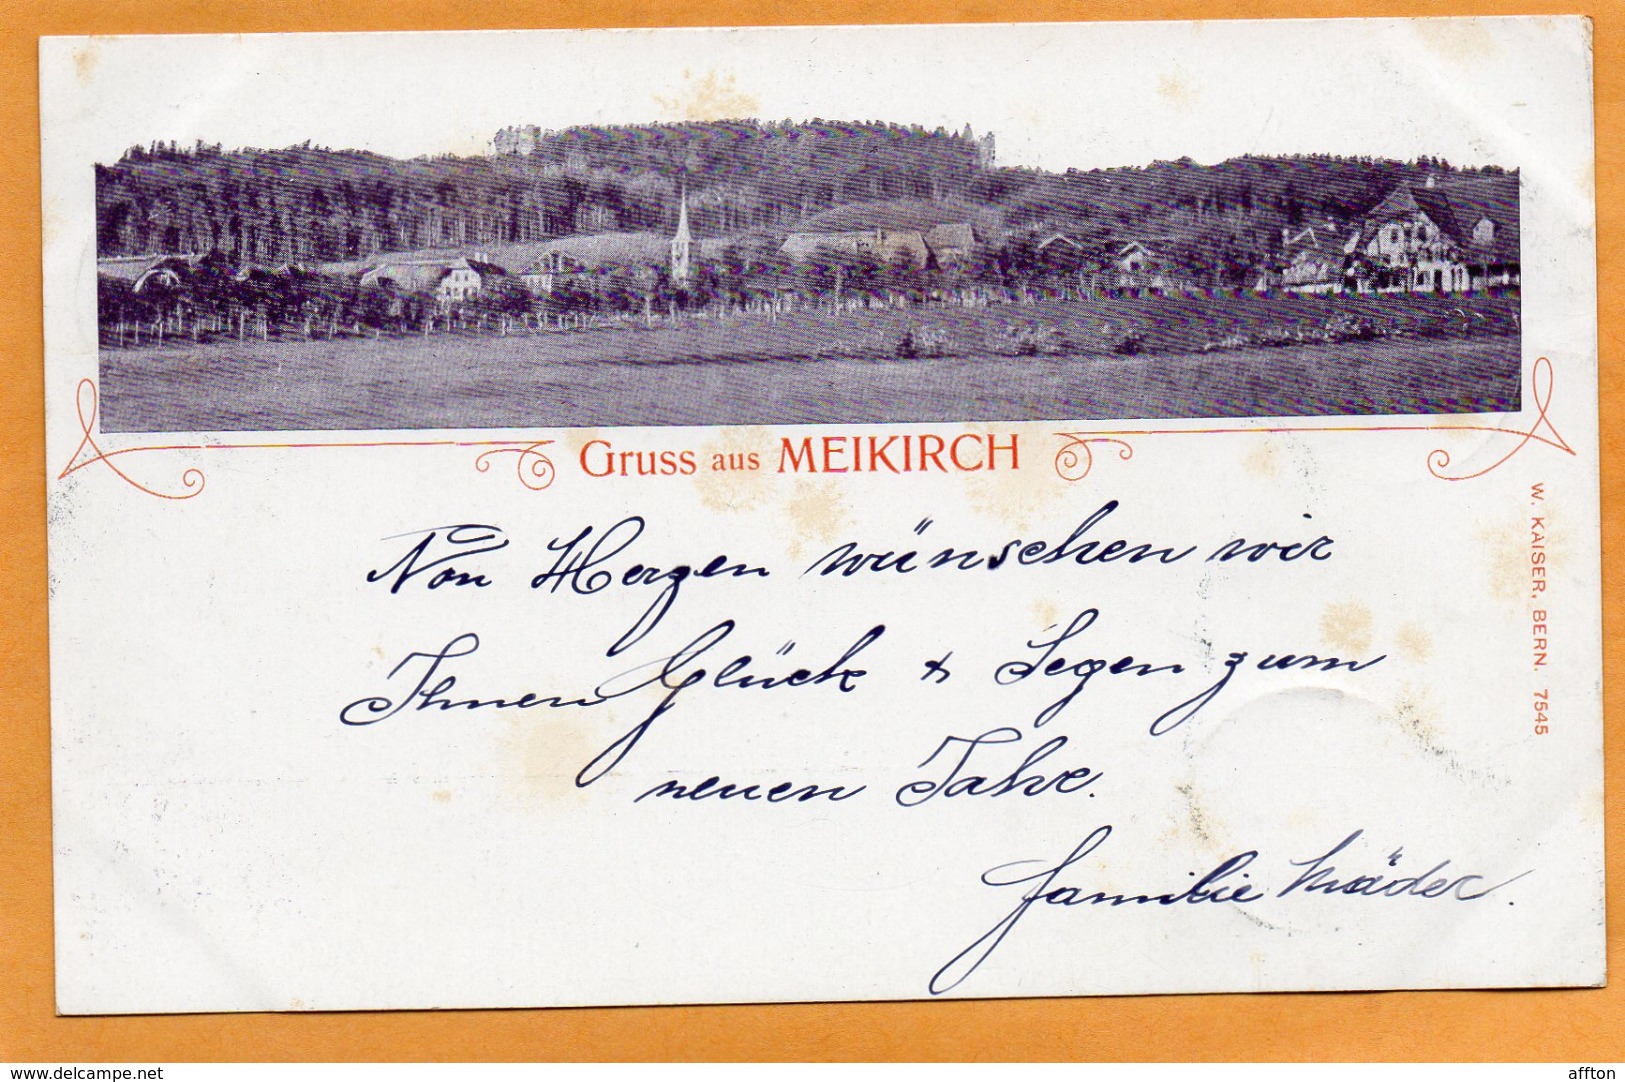 Gruss aus MEIKIRCH
W. KAISER, BERN. 7545
Von Herzen wünschen wir
Ihnen Glück & Segen zum
neuen Jahre.
Familie Mäder.
www.delcampe.net
affton